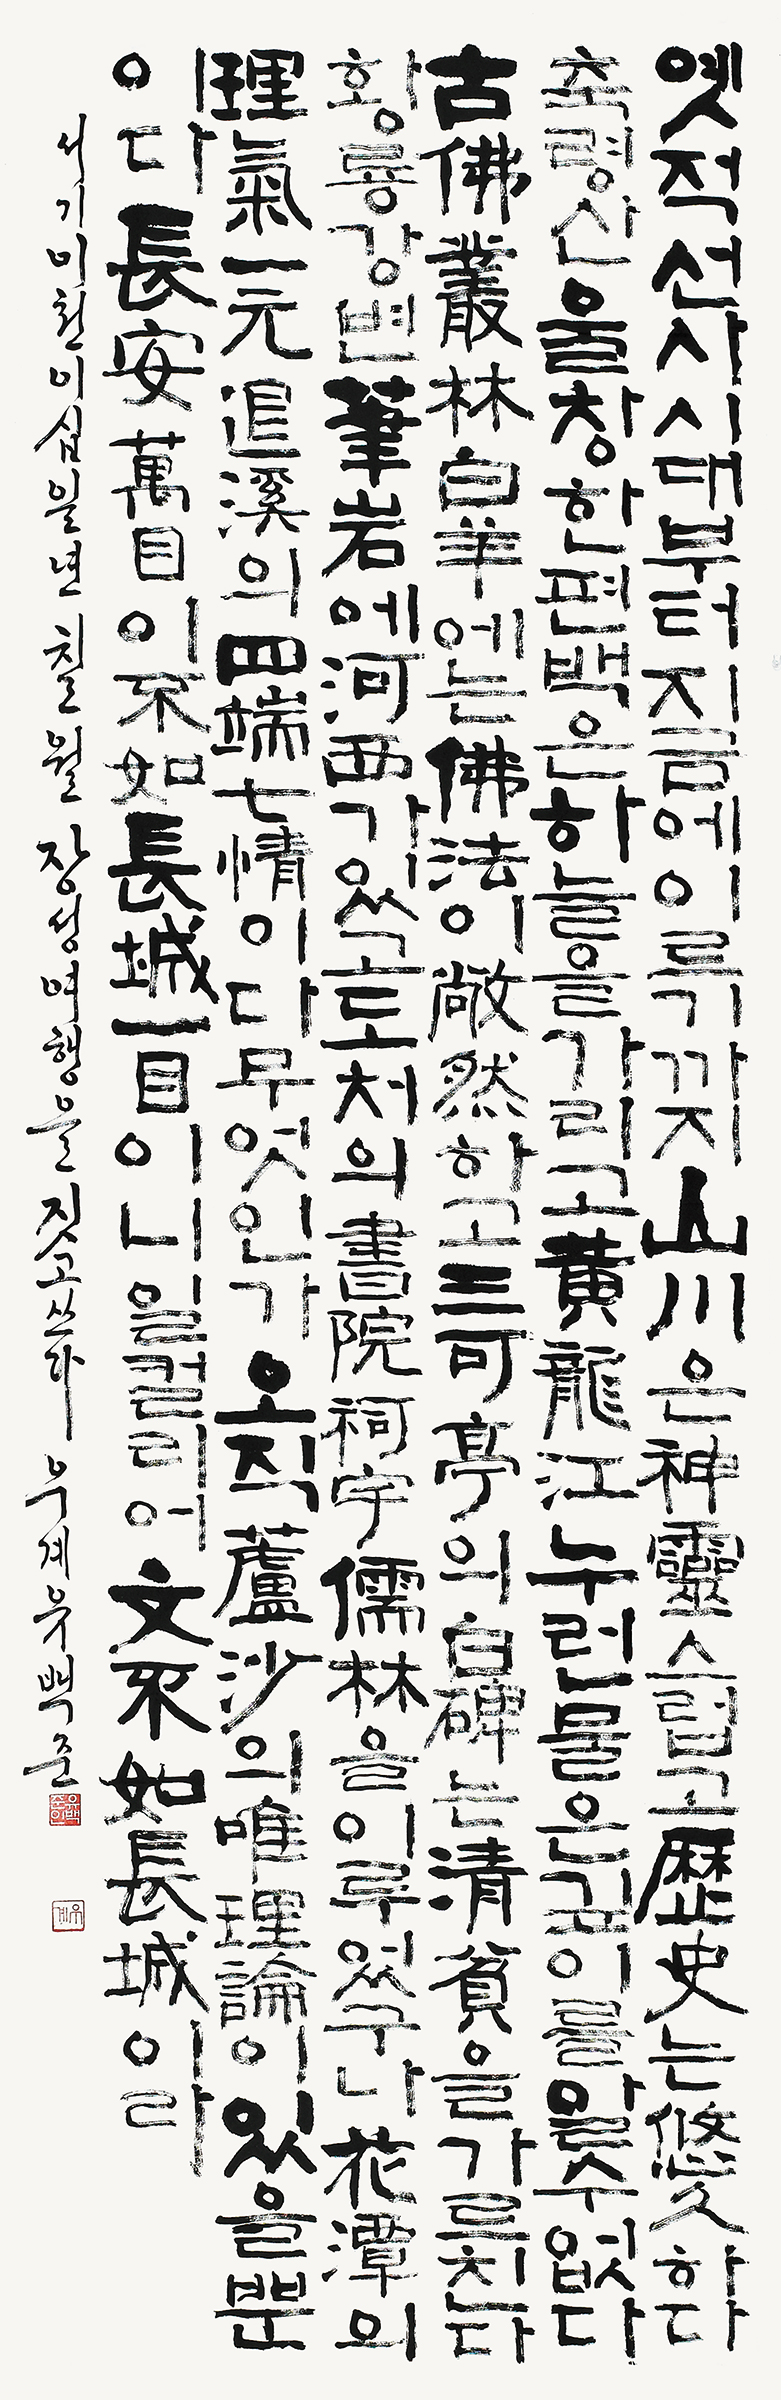 옛적선사시대부터지금에이르기까지山川은神靈스럽고歷史는悠久하다
축령산울창한편백은하늘을가리고黃龍江누런물은깊이를알수없다
古佛叢林白羊에는佛法이敞然하고三可亭의白碑는清貧을가르친다
황룡강변筆岩에河西가있고도처의書院祠宇儒林을이루었구나花潭의
理氣一元退溪의四端七情이다무엇인가오직蘆沙의唯理論이있을뿐
이다長安萬目이不如長城一目이니일컬리어文不如長城이라
서기이천이십일년 칠월 장성여행을 짓고쓰다 우계유백준